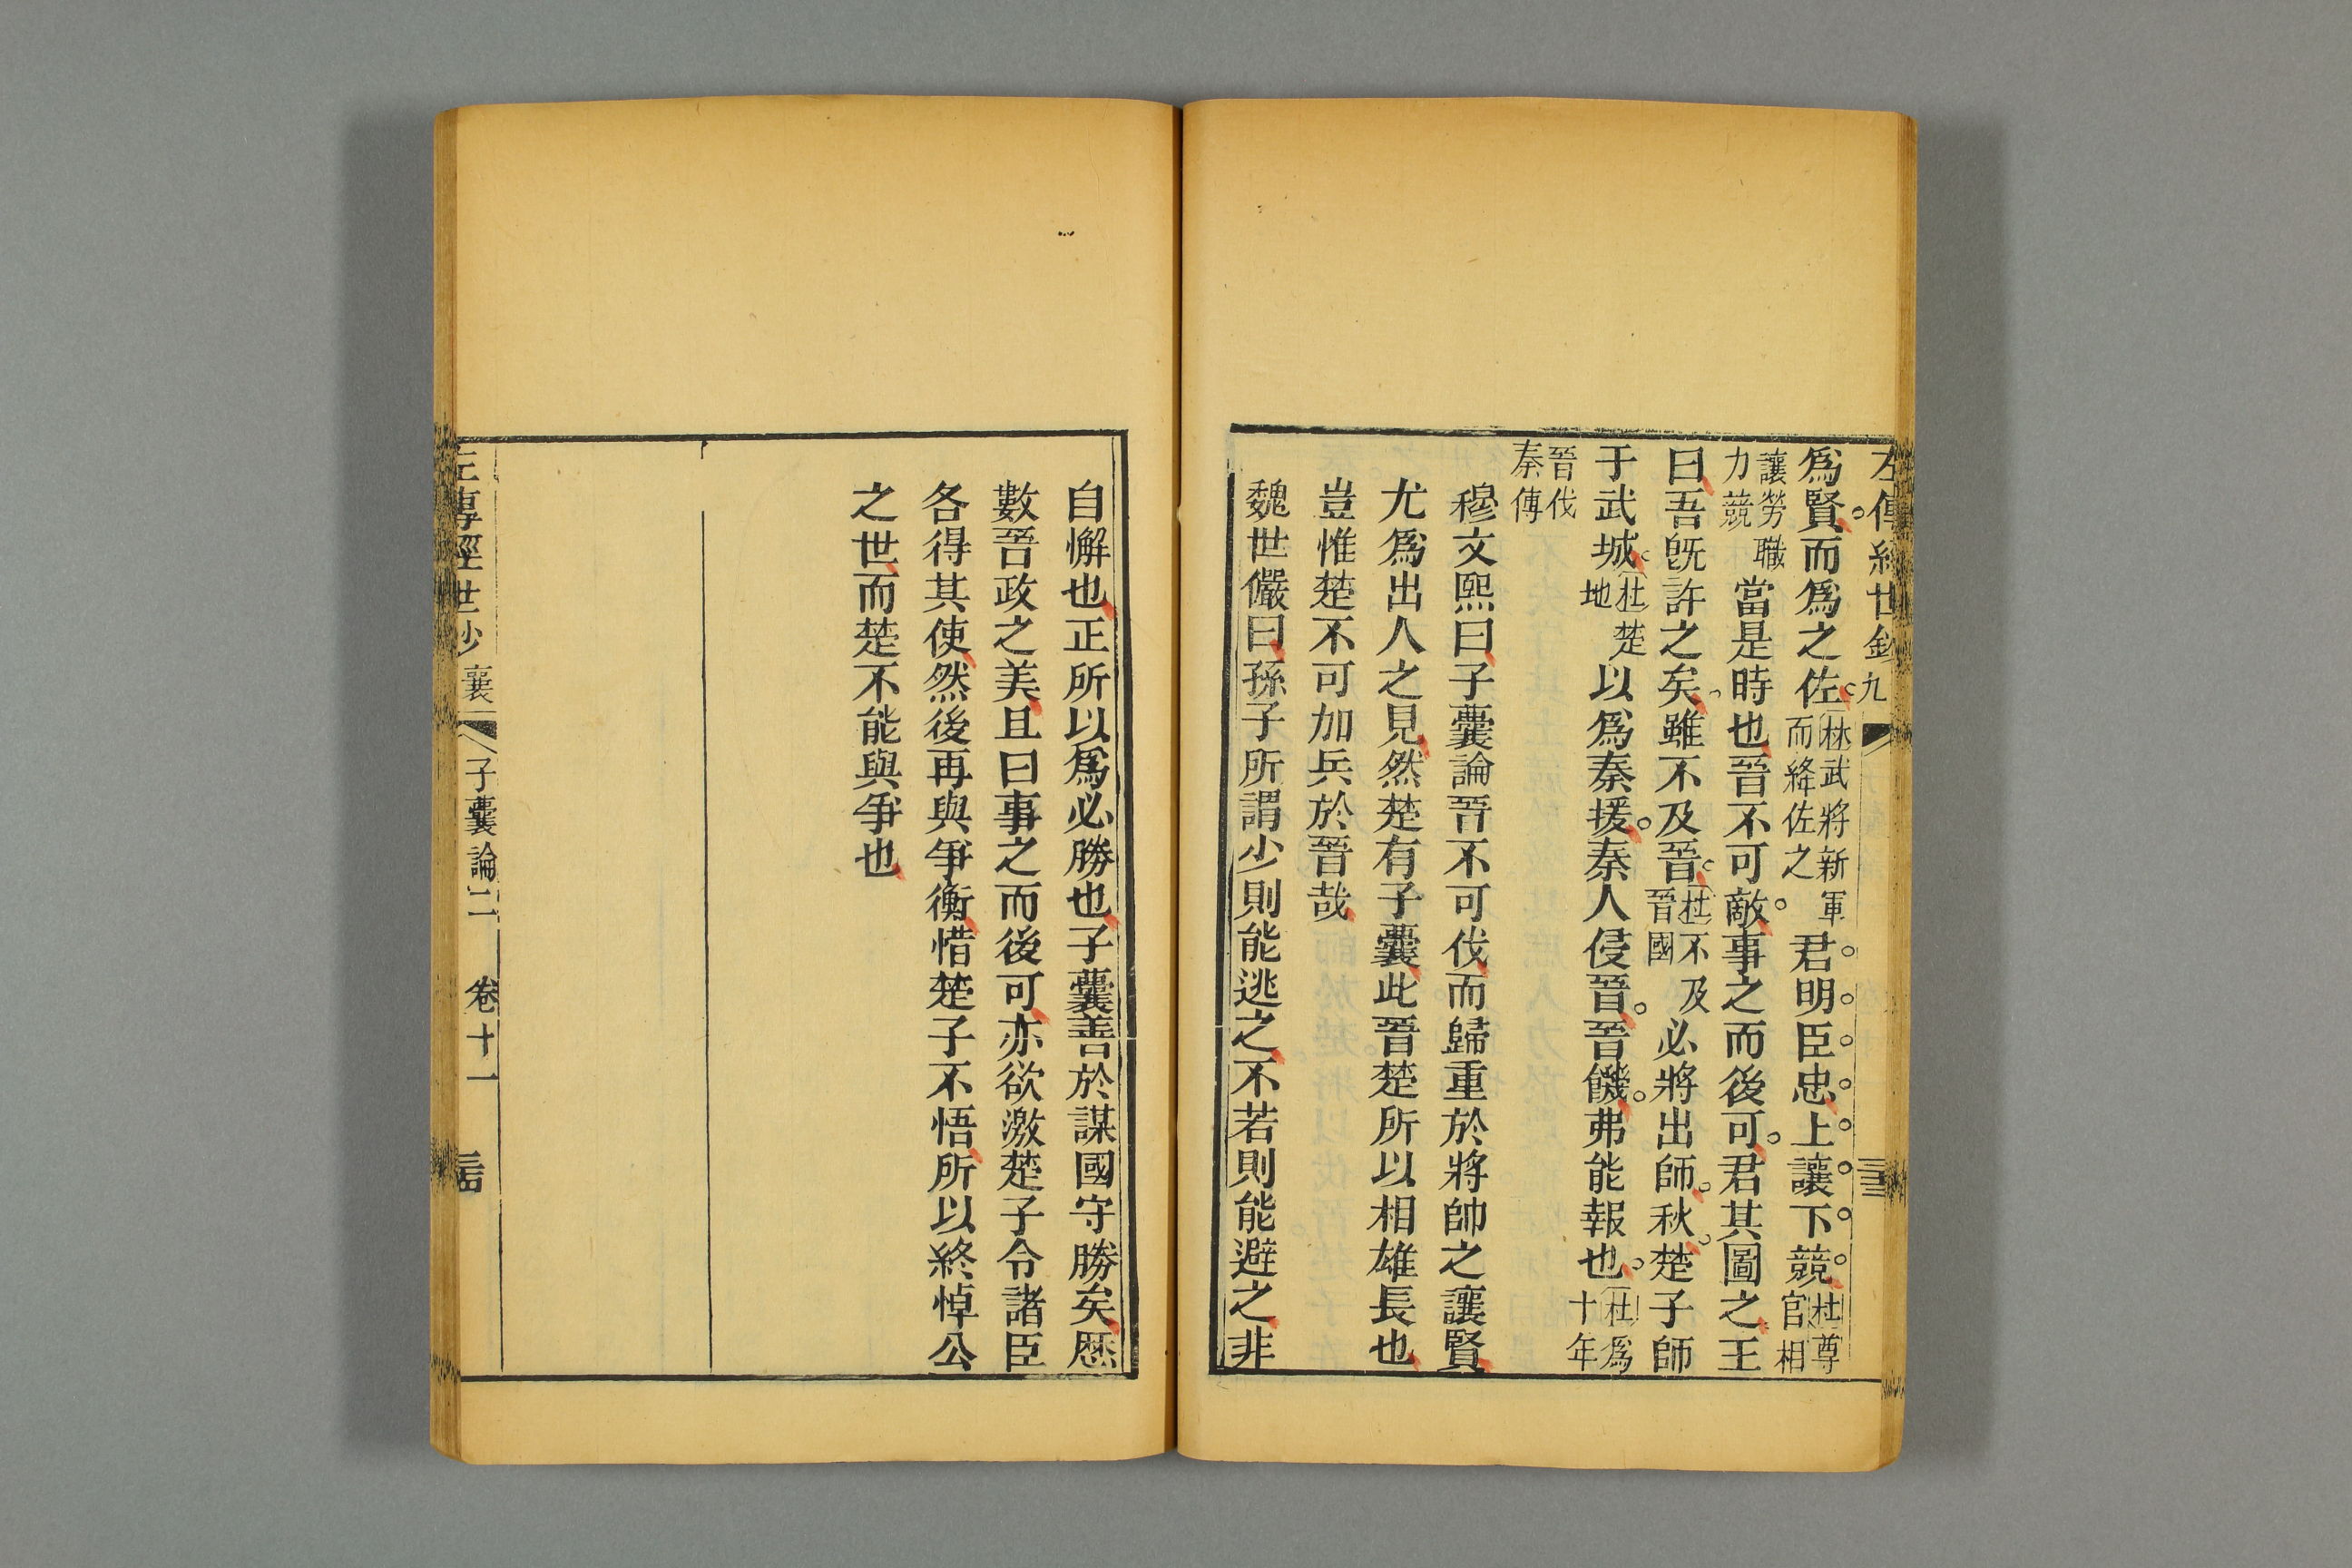 左傳經世鈔 九
爲賢而爲之佐林武將新軍而絳佐之君明臣忠上讓下競杜尊官相
讓勞職力競當是時也晉不可敵事之而後可君其圖之王
曰吾旣許之矣雖不及晉杜不及晉國必將出師秋楚子師
于武城杜楚地以爲秦援秦人侵晉晉饑弗能報也杜爲十年
晉伐秦傳
穆文熙曰子囊論晉不可伐而歸重於將帥之讓賢
尤爲出人之見然楚有子囊此晉楚所以相雄長也
豈惟楚不可加兵於晉哉
魏世儼曰孫子所謂少則能逃之不若則能避之非
自懈也正所以爲必勝也子囊善於謀國守勝矣歷
數晉政之美且曰事之而後可亦欲激楚子令諸臣
各得其使然後再與爭衡惜楚子不悟所以終悼公
之世而楚不能與爭也
左傳經世鈔 襄 子囊論二 卷十一